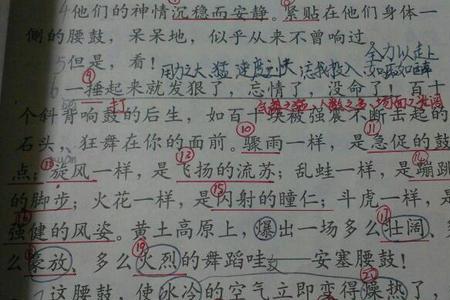 4他们的神情沉稳而安静。紧贴在他们身体一
侧的腰鼓，呆呆地，似乎从来不曾响过
5但是，看！
全力以赴
用力之大，猛，速度之快
如痴如醉
6一捶起来就发狠了，忘情了，没命了！百十
打
个斜背响鼓的后生，如百十块被强震不断击起的
石头，狂舞在你的面前。骤雨一样，是急促的鼓
点；旋风一样，是飞扬的流苏；乱蛙一样，是蹦跳
的脚步；火花一样，是闪射的瞳仁；斗虎一样，是
强健的风姿。黄土高原上，爆出一场多么壮阔、
么豪放、多么火烈的舞蹈哇——安塞腰鼓！
这腰鼓，使冰冷的空气立即变得燥热了，